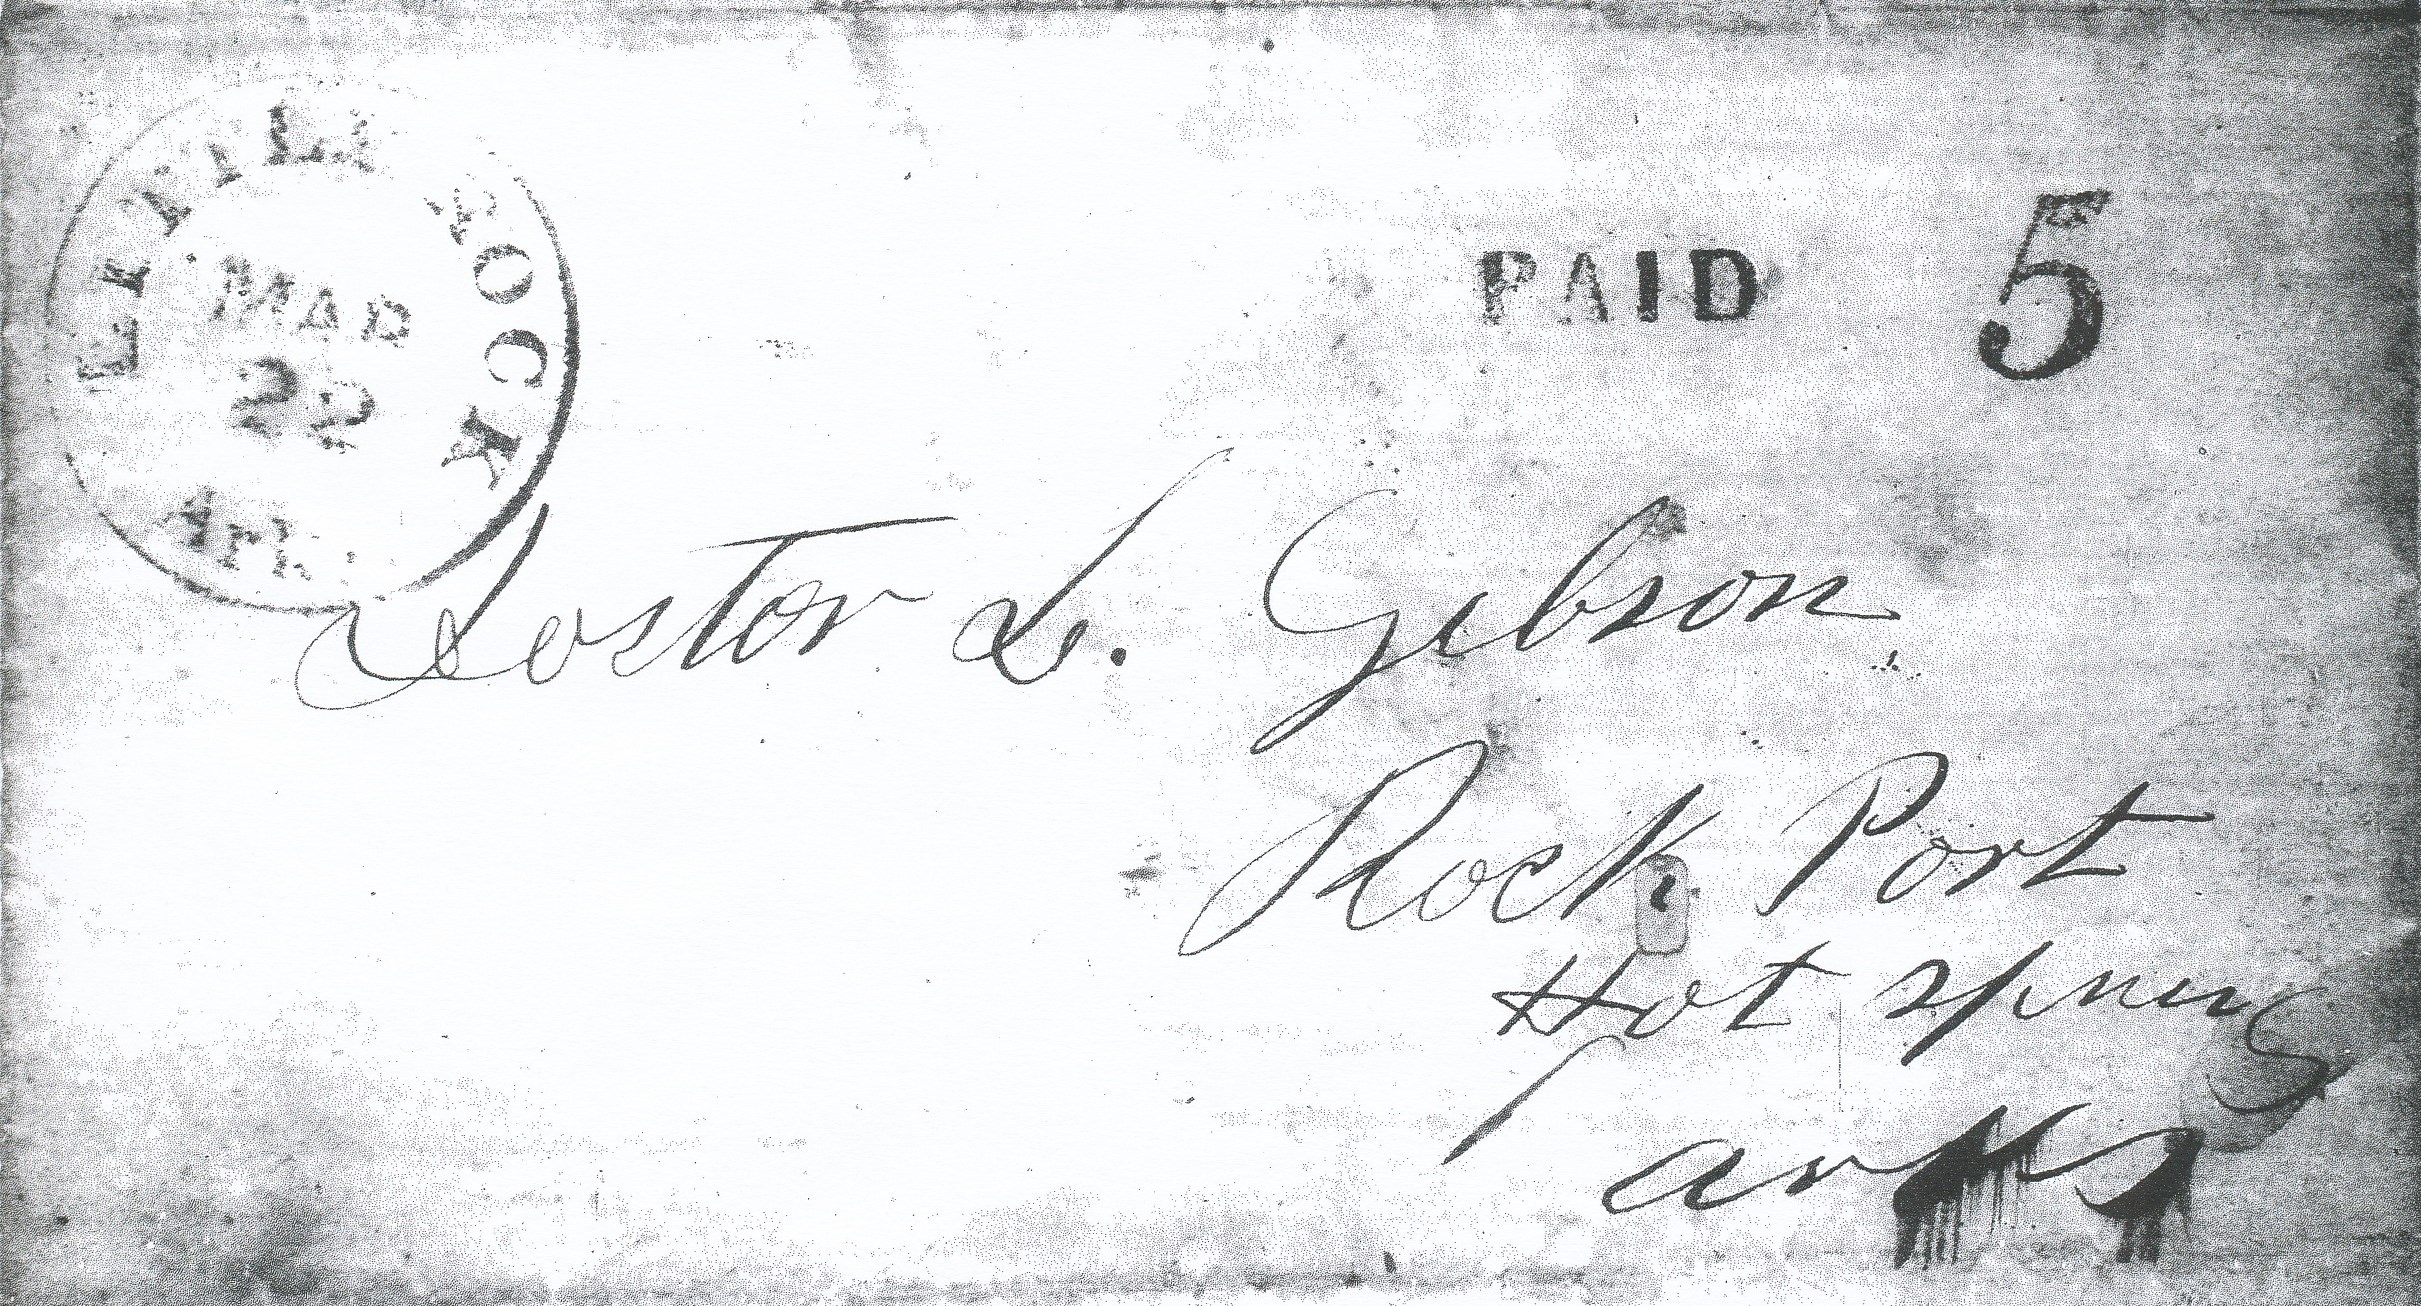 LITTLE ROCK
MAR
22
Ark.
PAID 5
Doctor L. Gibson
Rock Port
Hot Spring
Arks